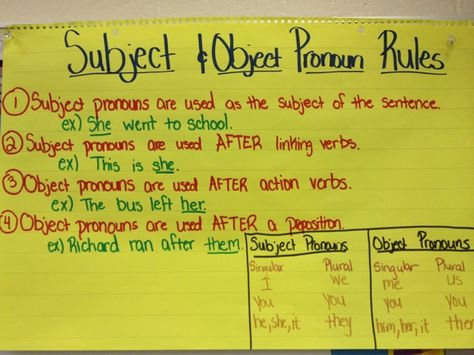 Subject & Object Pronoun Rules
① Subject pronouns are used as the subject of the sentence.
ex) She went to school.
② Subject pronouns are used AFTER linking verbs.
ex) This is she.
③ Object pronouns are used AFTER action verbs.
ex) The bus left her.
④ Object pronouns are used AFTER a preposition.
ex) Richard ran after them.
Subject Pronouns
Singular Plural
I we
you you
he, she, it they
Object Pronouns
Singular Plural
me us
you you
him, her, it